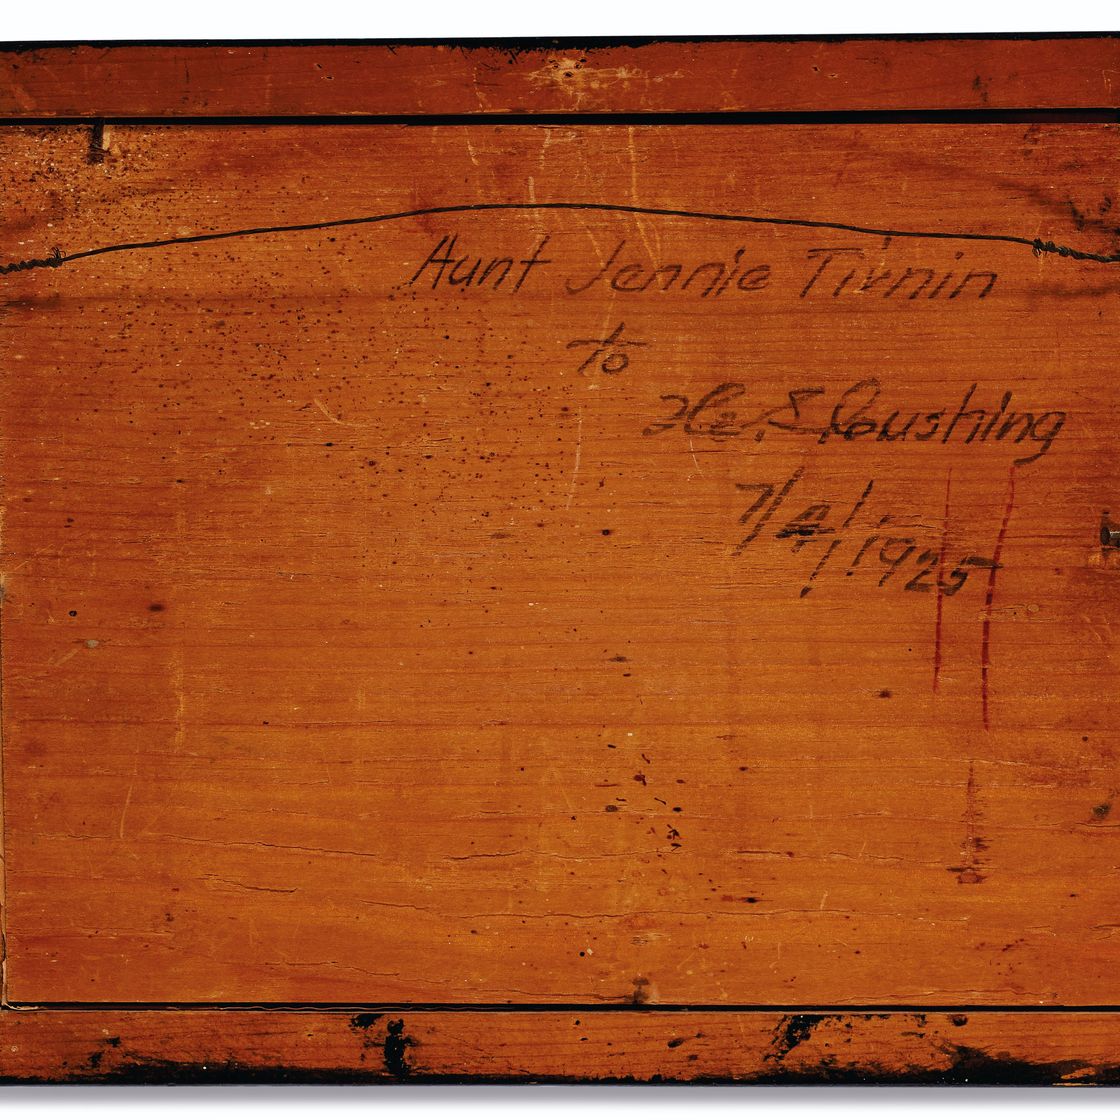 Aunt Jennie Tirnin
to
H. E. Cushing
7/4/1925